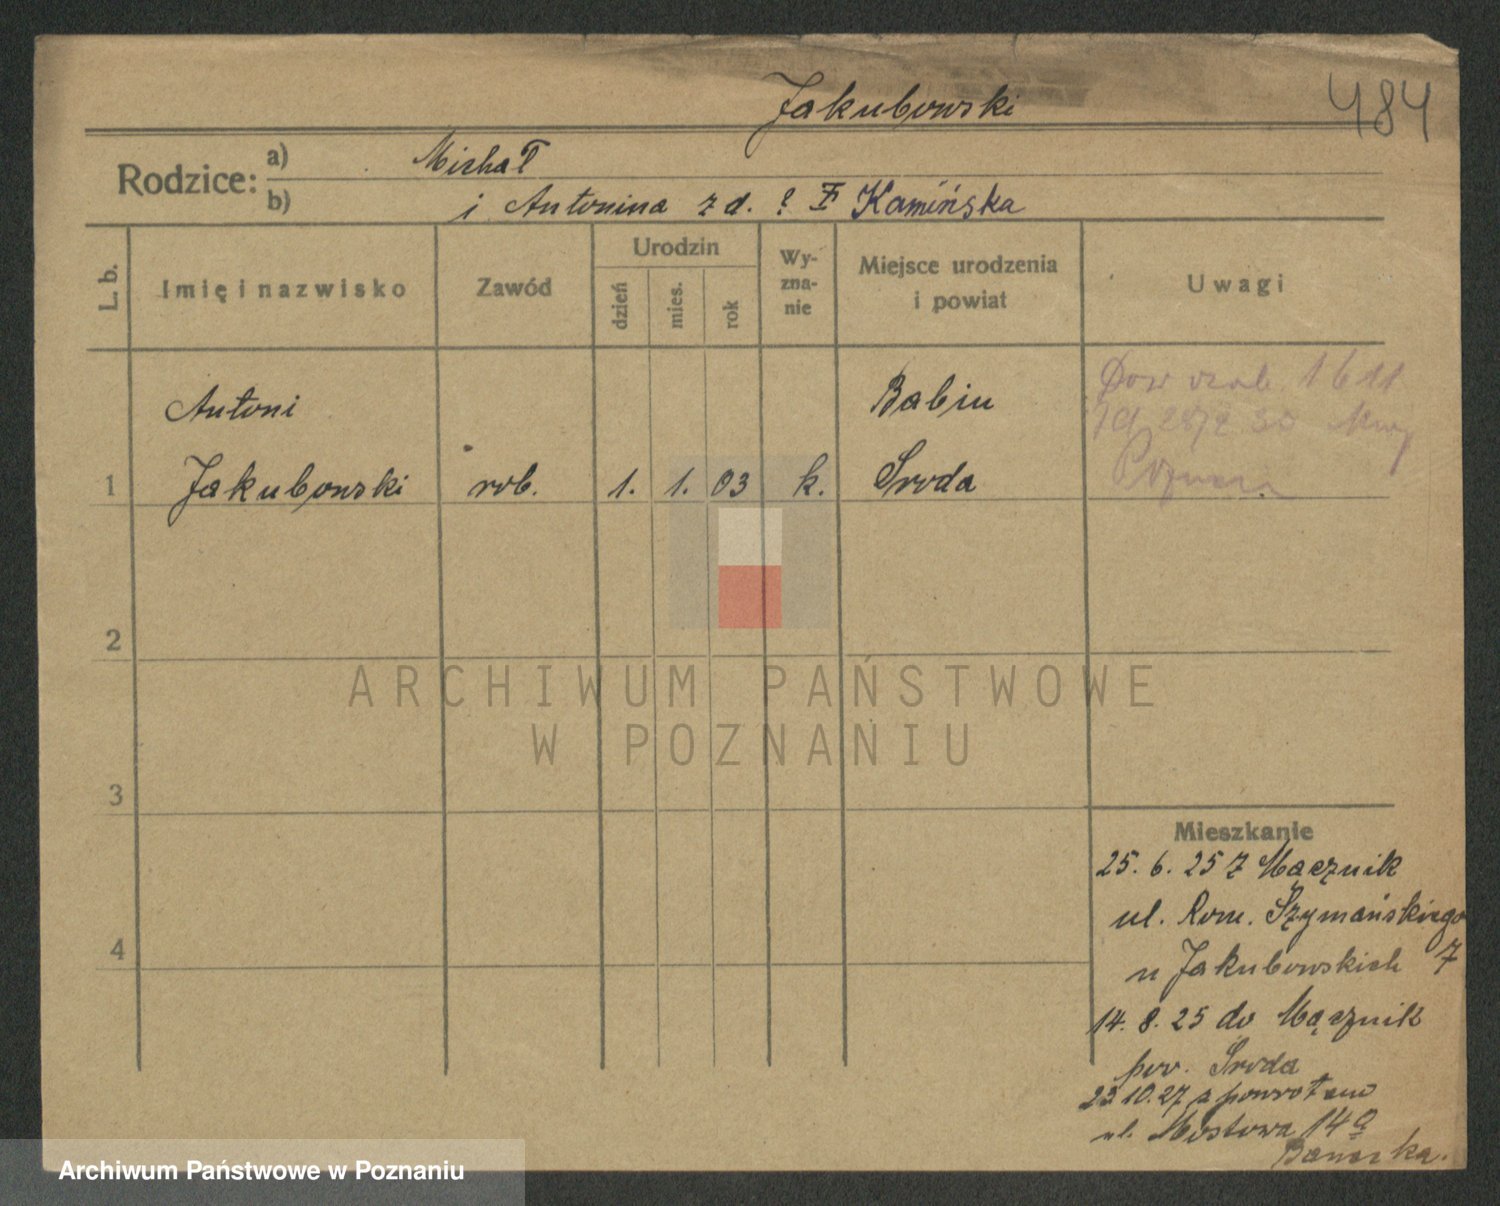 Jakubowski
484
Rodzice: a) Michał
b) i Antonina z d. ? Kamińska
L. b.
Imię i nazwisko
Zawód
Urodzin
dzień
mies.
rok
Wy-
zna-
nie
Miejsce urodzenia
i powiat
Uwagi
Antoni
Babin
Dow osob. 1611
1
Jakubowski rob. 1. 1. 03 k. Środa
2
3
4
ARCHIWUM PAŃSTWOWE
W POZNANIU
Mieszkanie
25. 6. 25 z Mącznik
ul. Rom. Szymańskiego
u Jakubowskich 7
14. 8. 25 do Mącznik
pow. Środa
23.10.27 z powrotem
ul. Mostowa 14a
Archiwum Państwowe w Poznaniu